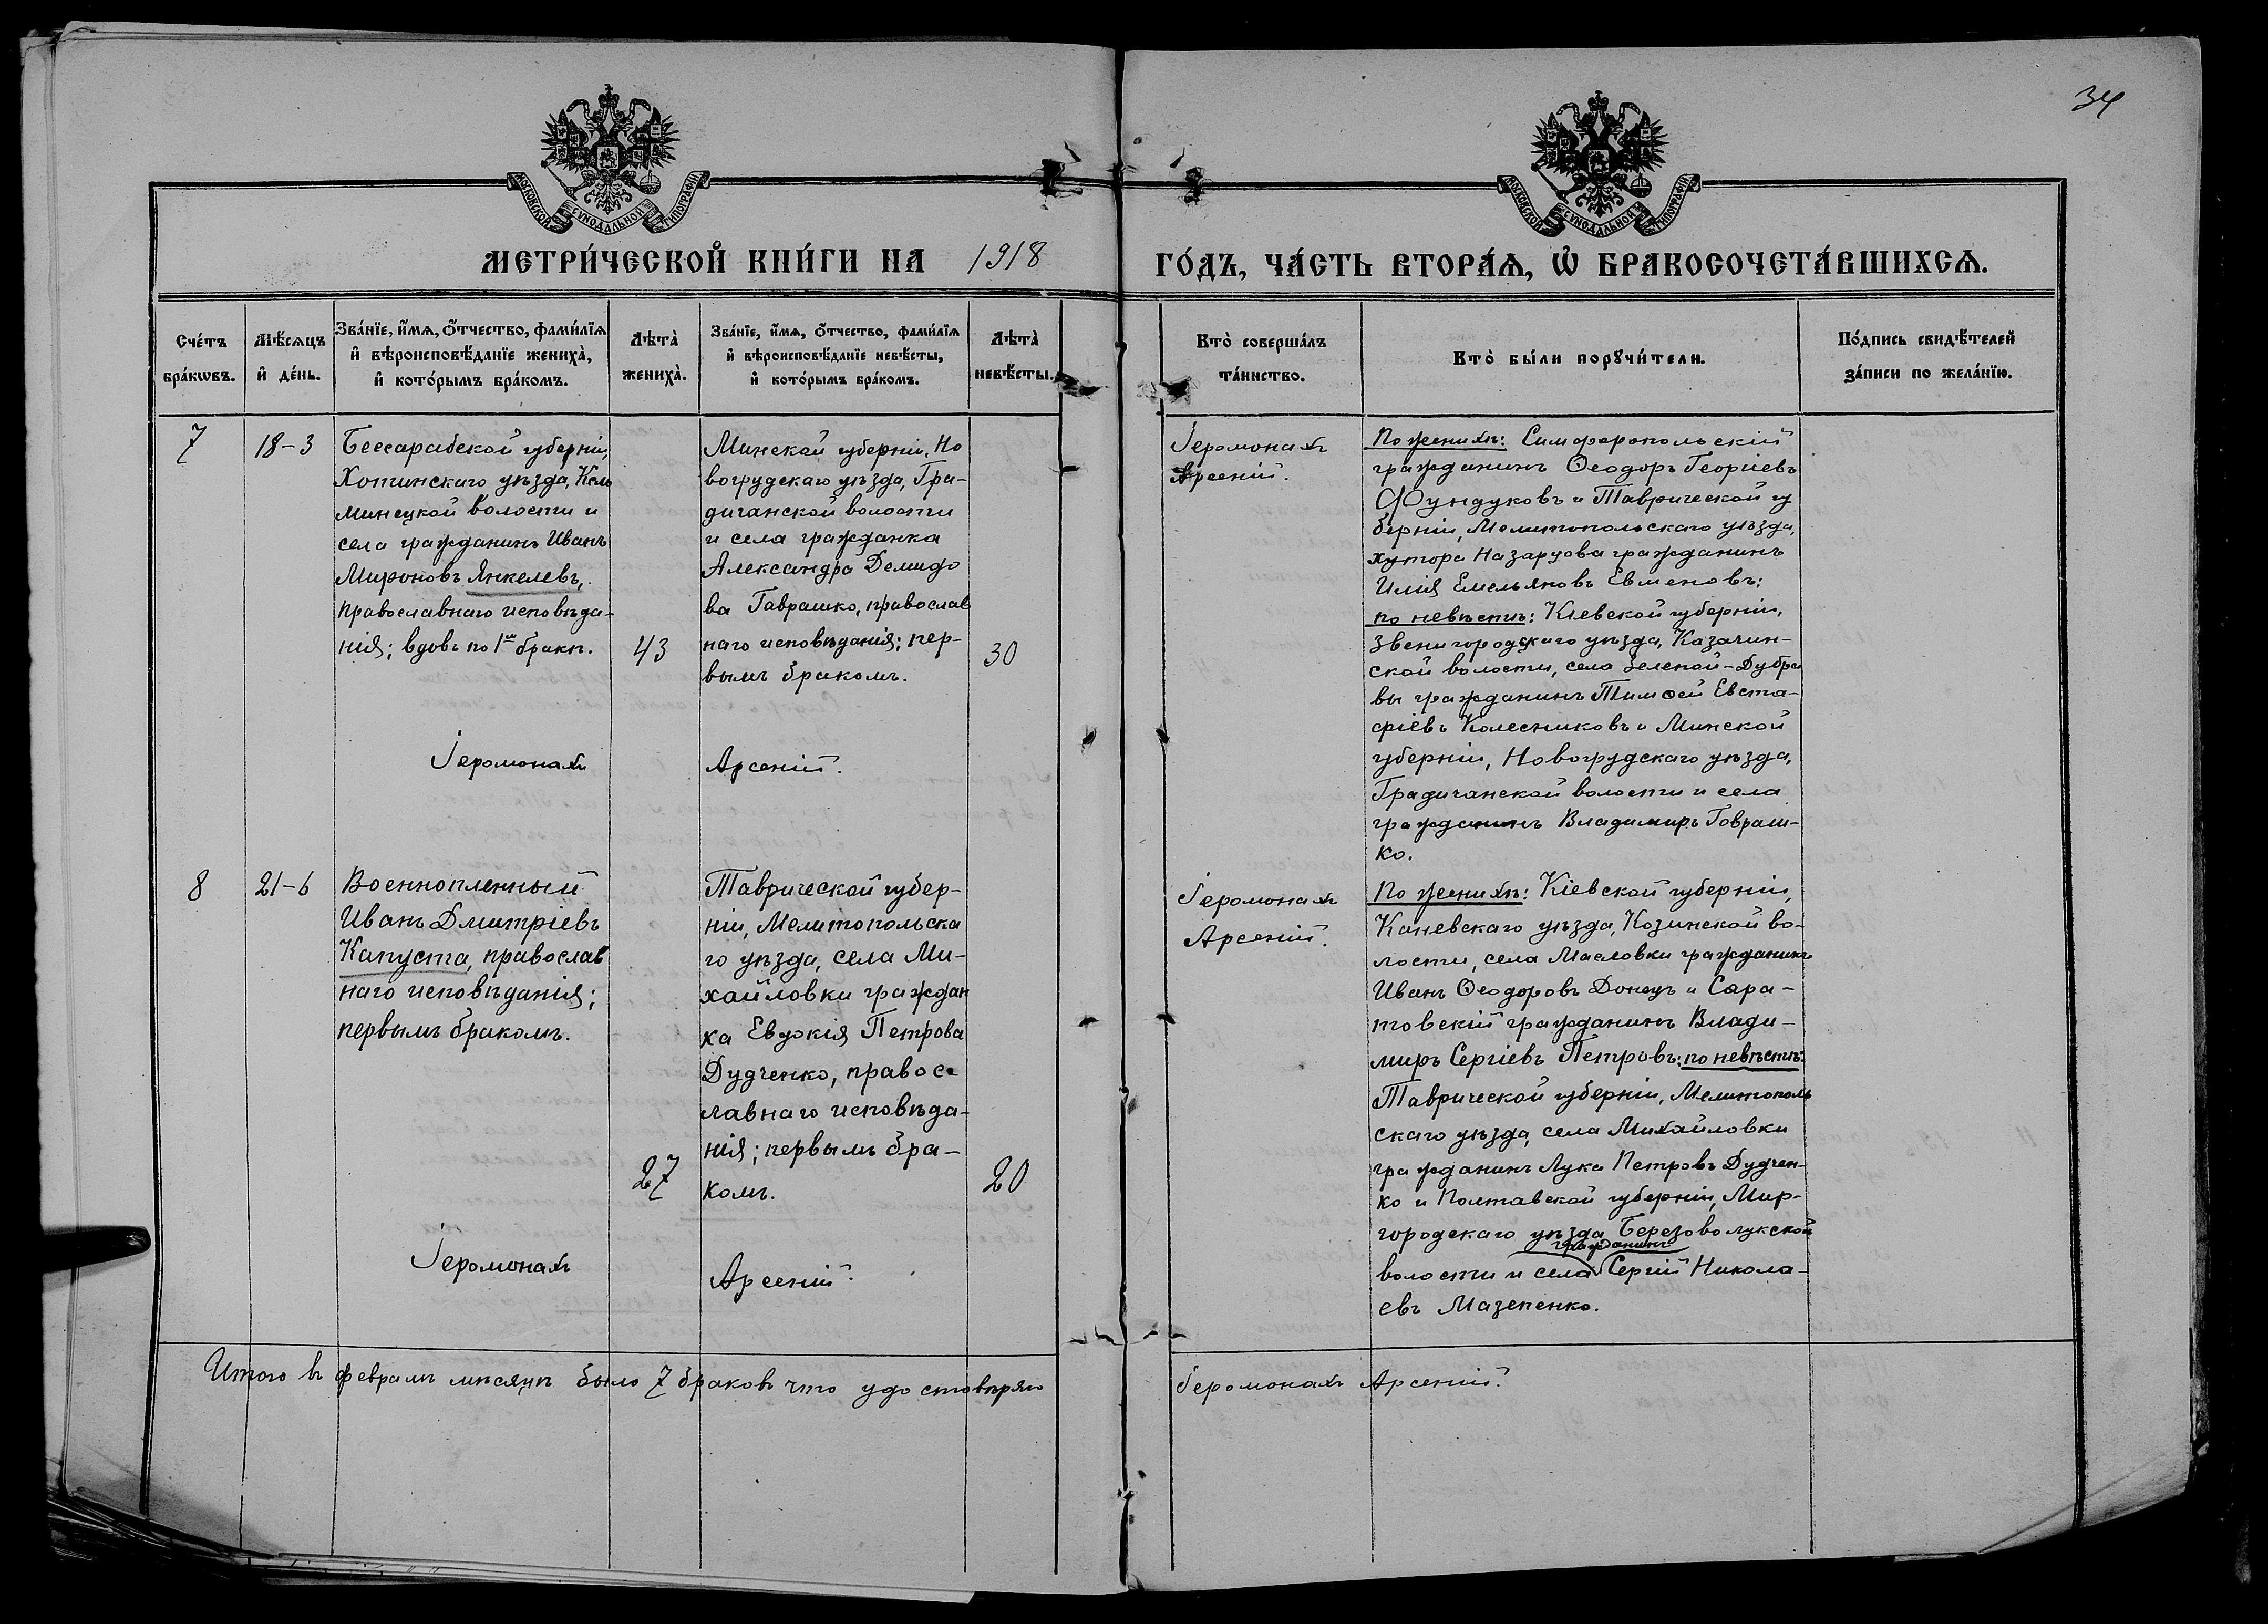 34
МОСКОВСКОЙ СУНОДАЛЬНОЙ ТИПОГРАФІИ
МОСКОВСКОЙ СУНОДАЛЬНОЙ ТИПОГРАФІИ
МЕТРИ́ЧЕСКОЙ КНИ́ГИ НА 1918
ГО́ДЪ, ЧА́СТЬ ВТОРА́Ѧ, Ѽ БРАКОСОЧЕТА́ВШИХСѦ.
Сче́тъ
бра́кѡвъ.
Мѣ́сѧцъ
и҆ де́нь.
Зва́нїе, и҆́мѧ, ѻ҆́тчество, фами́лїѧ
и҆ вѣроисповѣ́данїе жениха̀,
и҆ кото́рымъ бра́комъ.
Лѣта̀
жениха̀.
Зва́нїе, и҆́мѧ, ѻ҆́тчество, фами́лїѧ
и҆ вѣроисповѣ́данїе невѣ́сты,
и҆ кото́рымъ бра́комъ.
Лѣта̀
невѣ́сты.
Кто̀ соверша́лъ
та́инство.
Кто̀ бы́ли порꙋчи́тели.
По́дпись свидѣ́телей
за́писи по жела́нїю.
7
18-3
Бессарабской губерніи,
Хотинскаго уѣзда, Кель
минецкой волости и
села гражданинъ Иванъ
Мироновъ Янкелевъ,
православнаго исповѣда-
нія; вдовъ по 1мъ бракѣ.
43
Минской губерніи, Но
вогрудскаго уѣзда, Гра-
дичанской волости
и села гражданка
Александра Демидо
ва Гаврашко, православ
наго исповѣданія; пер-
вымъ бракомъ.
30
Іеромонахъ Арсеній.
Іеромонахъ
Арсеній.
По женихѣ: Симферопольскій
гражданинъ Ѳеодоръ Георгіевъ
Фундуковъ и Таврической гу
берніи, Мелитопольскаго уѣзда,
хутора Назарцова гражданинъ
Илія Емельяновъ Евменовъ:
по невѣстѣ: Кіевской губерніи,
Звенигородскаго уѣзда, Казачин-
ской волости, села Зеленой-Дубра
вы гражданинъ Тимоѳей Евста-
фіевъ Колесниковъ и Минской
губерніи, Новогрудскаго уѣзда,
Градичанской волости и села
гражданинъ Владимиръ Говраш-
ко.
8
21-6
Военнопленный
Иванъ Дмитріевъ
Капуста, православ
наго исповѣданія;
первымъ бракомъ.
27
Таврической губер-
ніи, Мелитопольска
го уѣзда, села Ми-
хайловки граждан
ка Евдокія Петрова
Дудченко, правос
лавнаго исповѣда-
нія; первымъ бра-
комъ.
20
Іеромонахъ Арсеній.
Іеромонахъ
Арсеній.
По женихѣ: Кіевской губерніи,
Каневскаго уѣзда, Козинской во-
лости, села Масловки гражданинъ
Иванъ Ѳеодоровъ Донецъ и Сара-
товскій гражданинъ Влади-
миръ Сергіевъ Петровъ: по невѣстѣ:
Таврической губерніи, Мелитополь
скаго уѣзда, села Михайловки
гражданинъ Лука Петровъ Дудчен-
ко и Полтавской губерніи, Мир-
городскаго уѣзда Березоволукской
гражданинъ
волости и села Сергій Никола-
евъ Мазепенко.
Итого въ февралѣ мѣсяцѣ было 7 браковъ что удостовѣряю
Іеромонахъ Арсеній.